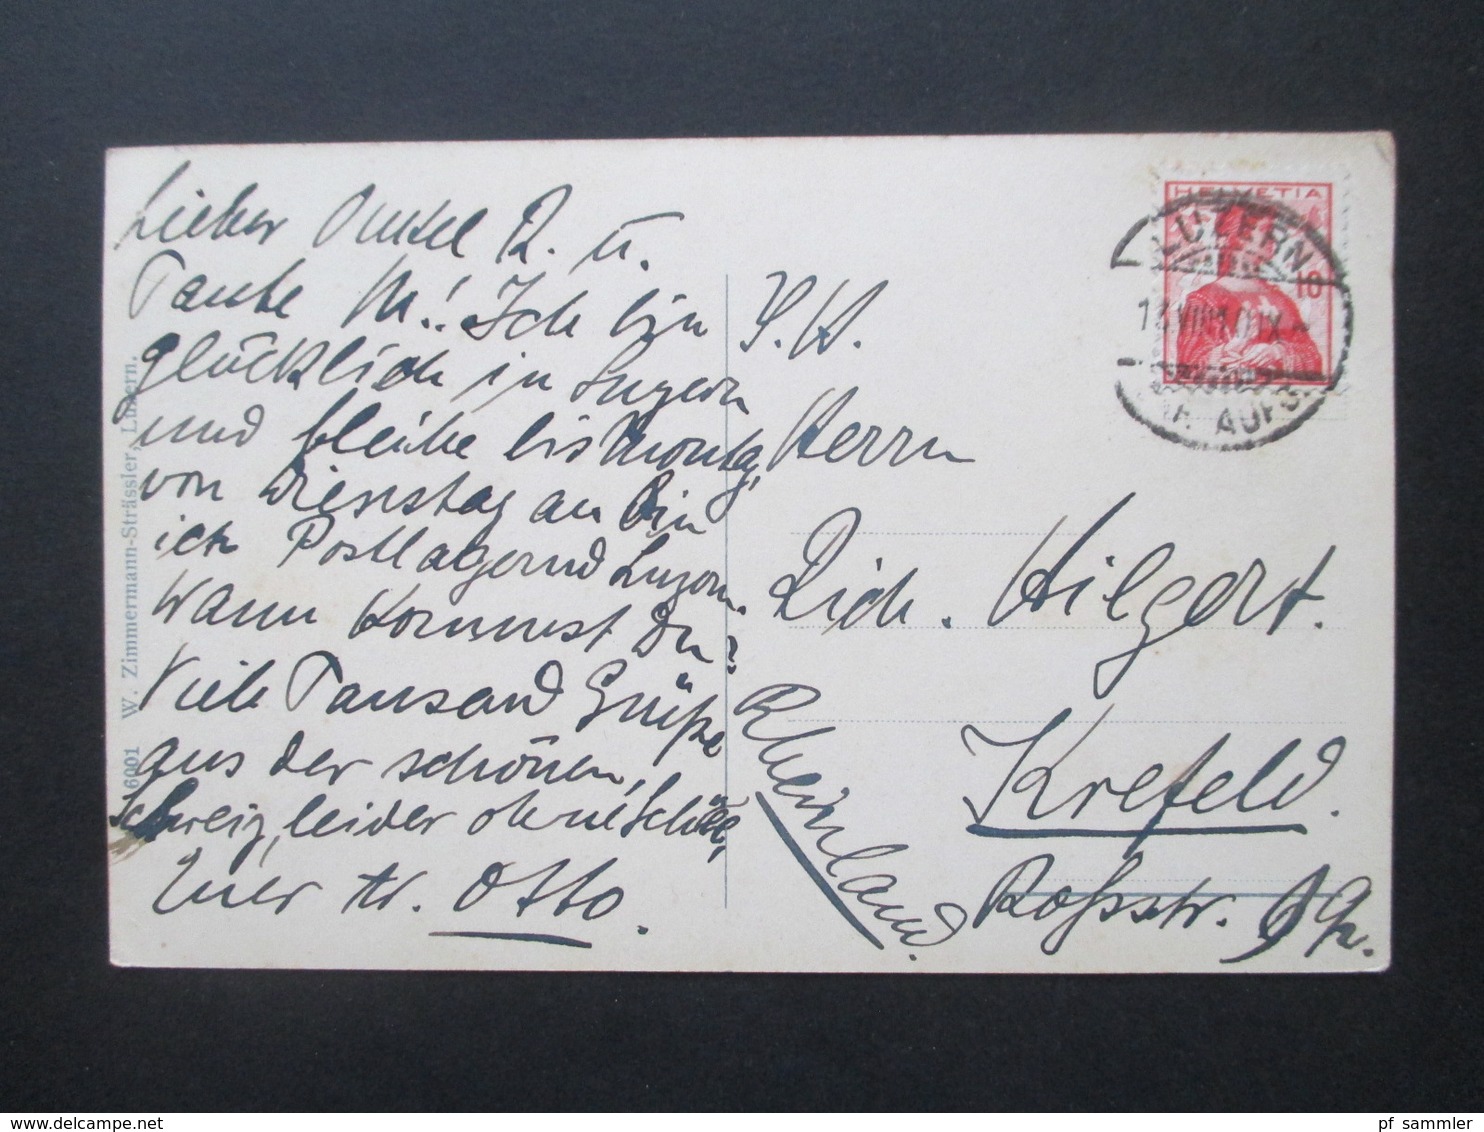 Lieber Onkel R. u.
Tante M.! Ich bin
glücklich in Luzern
und bleibe bis Montag,
von Dienstag an bin
ich Postlagernd Luzern.
Wann kommst Du?
Viele Tausend Grüße
aus der schönen
Schweiz, leider ohne
Euer tr. Otto.
W. Zimmermann-Strässler, Luzern.
6001
HELVETIA
10
LUZERN
AUFG.
S. H.
Herrn
Rich. Hilgert.
Krefeld.
Rheinland.
Roßstr.
pf sammler
www.delcampe.net